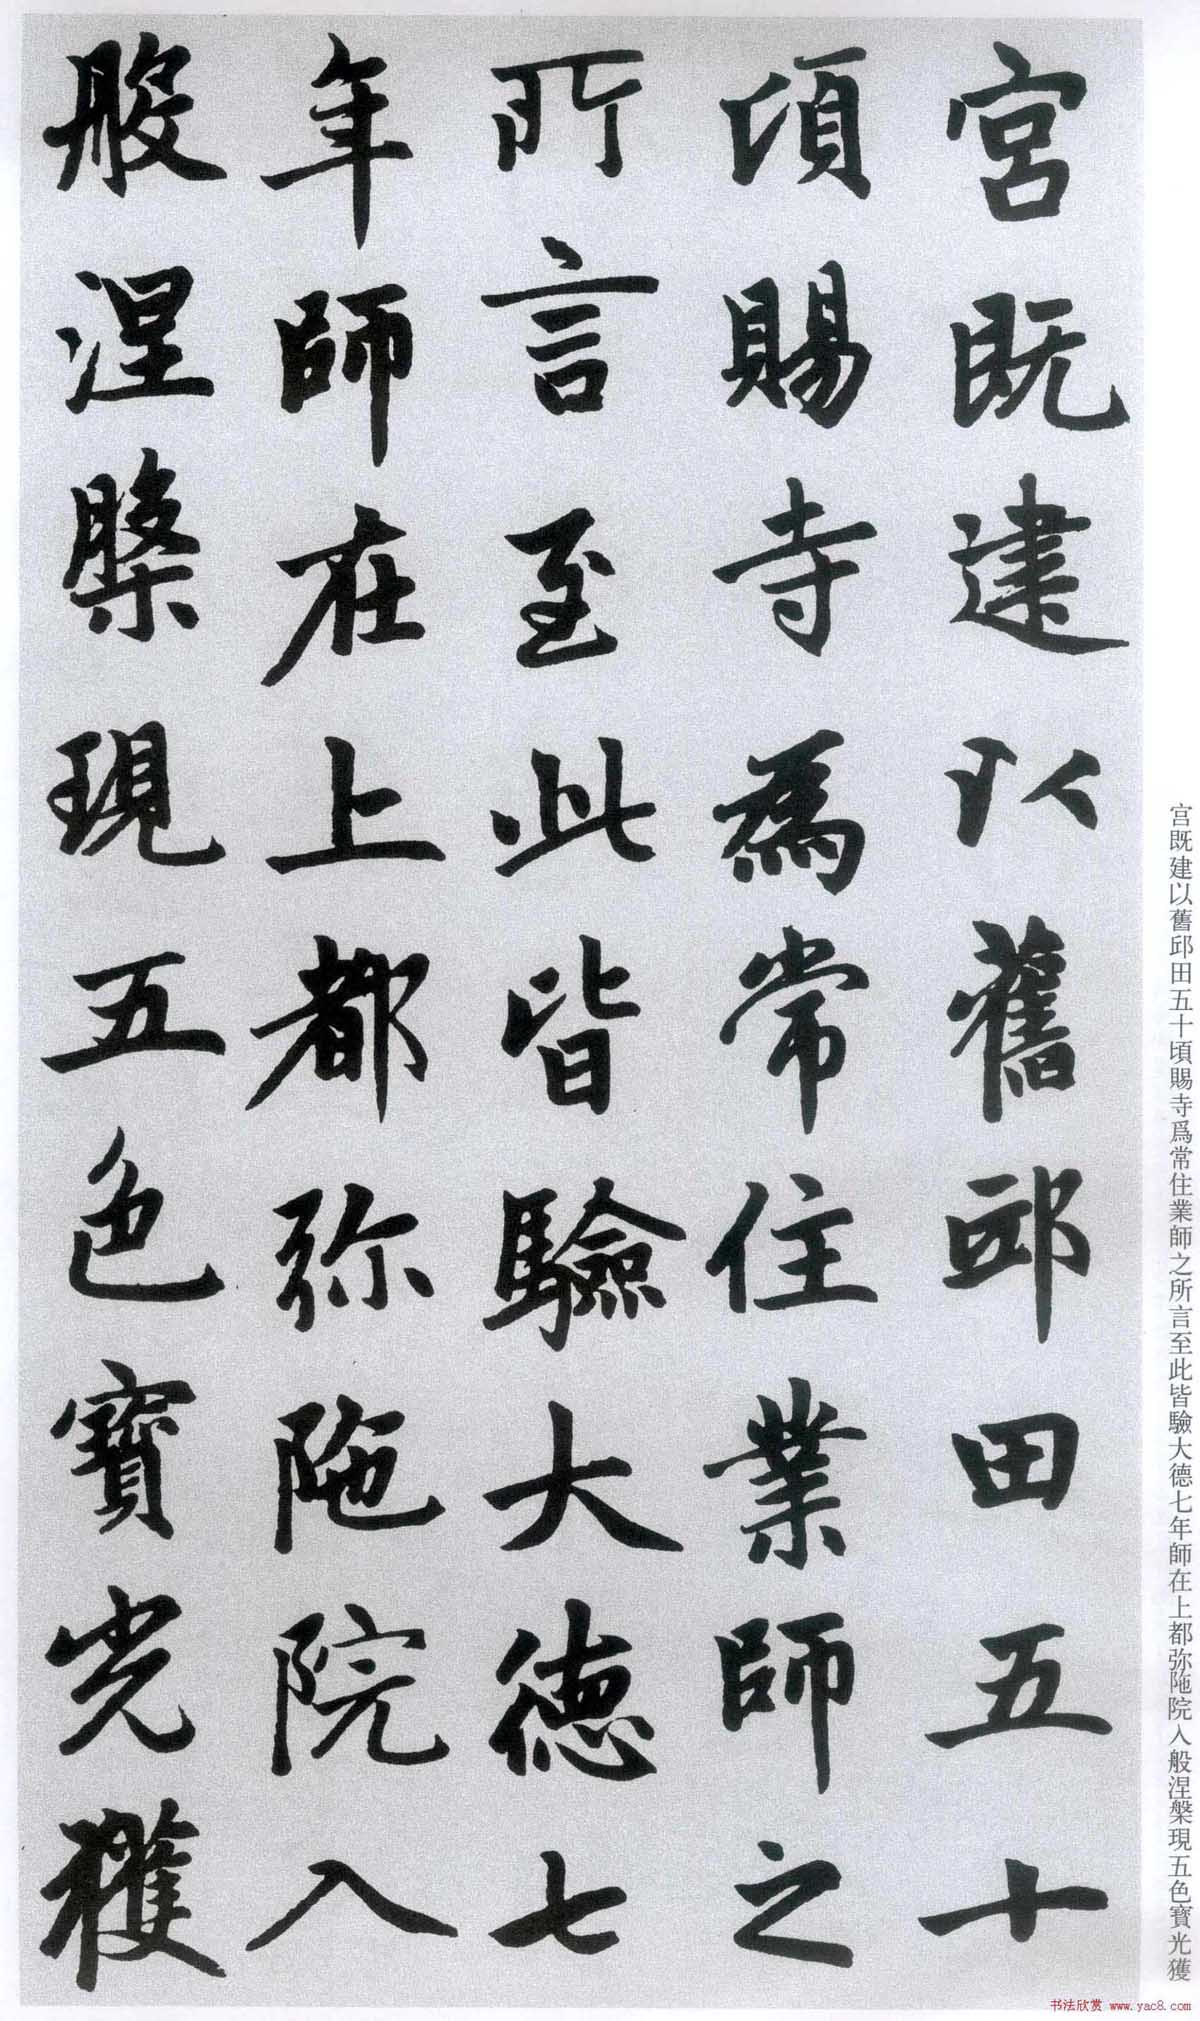 宮既建以舊邱田五十
頃賜寺為常住業師之
所言至此皆驗大德七
年師在上都弥陁院入
般涅槃現五色寶光獲
宫既建以舊邱田五十頃賜寺爲常住業師之所言至此皆驗大德七年師在上都弥陁院入般涅槃現五色寳光獲
书法欣赏 www.yac8.com